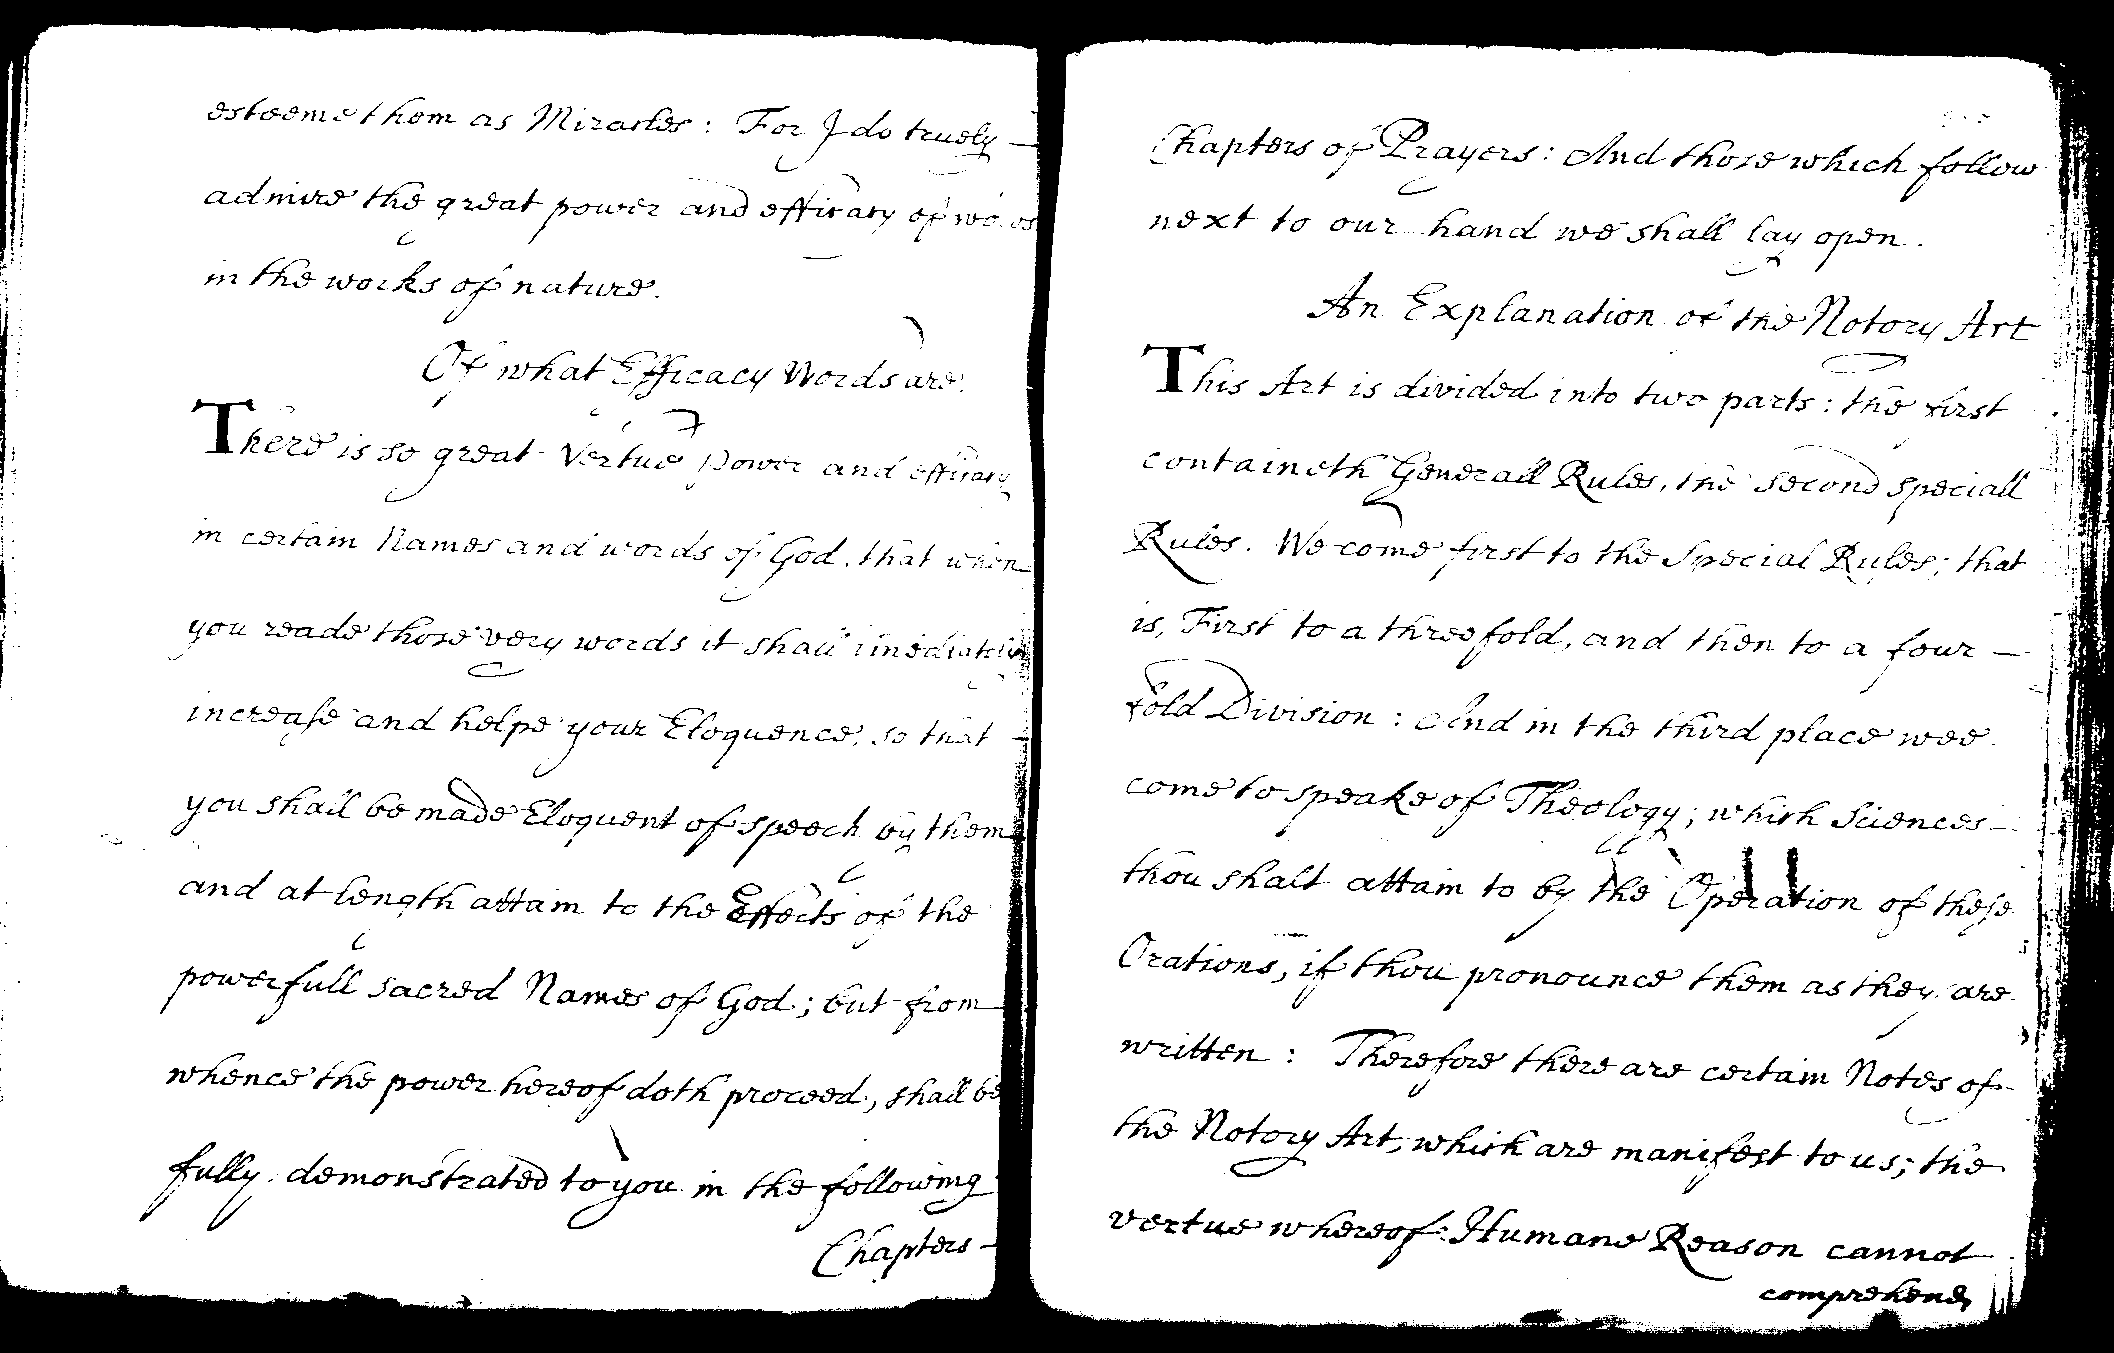 esteeme them as Miracles: For I do truely —
admire the great power and efficacy of
in the works of nature.
Of what Efficacy Words are.
There is so great Vertue Power and efficacy
in certain Names and words of God, that when
you reade those very words it shall imediately
increase and helpe your Eloquence, so that —
you shall be made Eloquent of speech by them
and at length attain to the Effects of the
powerfull sacred Names of God; but from
whence the power hereof doth proceed, shall be
fully demonstrated to you in the following
Chapters —
Chapters of Prayers: And those which follow
next to our hand we shall lay open.
An Explanation of the Notory Art
This Art is divided into two parts: the first
containeth Generall Rules, the second speciall
Rules. We come first to the Special Rules; that
is, First to a threefold, and then to a four —
fold Division: And in the third place wee
come to speake of Theology; which Sciences —
thou shalt attain to by the Operation of these
Orations, if thou pronounce them as they are
written: Therefore there are certain Notes of
the Notory Art, which are manifest to us; the
vertue whereof Humane Reason cannot
comprehend,